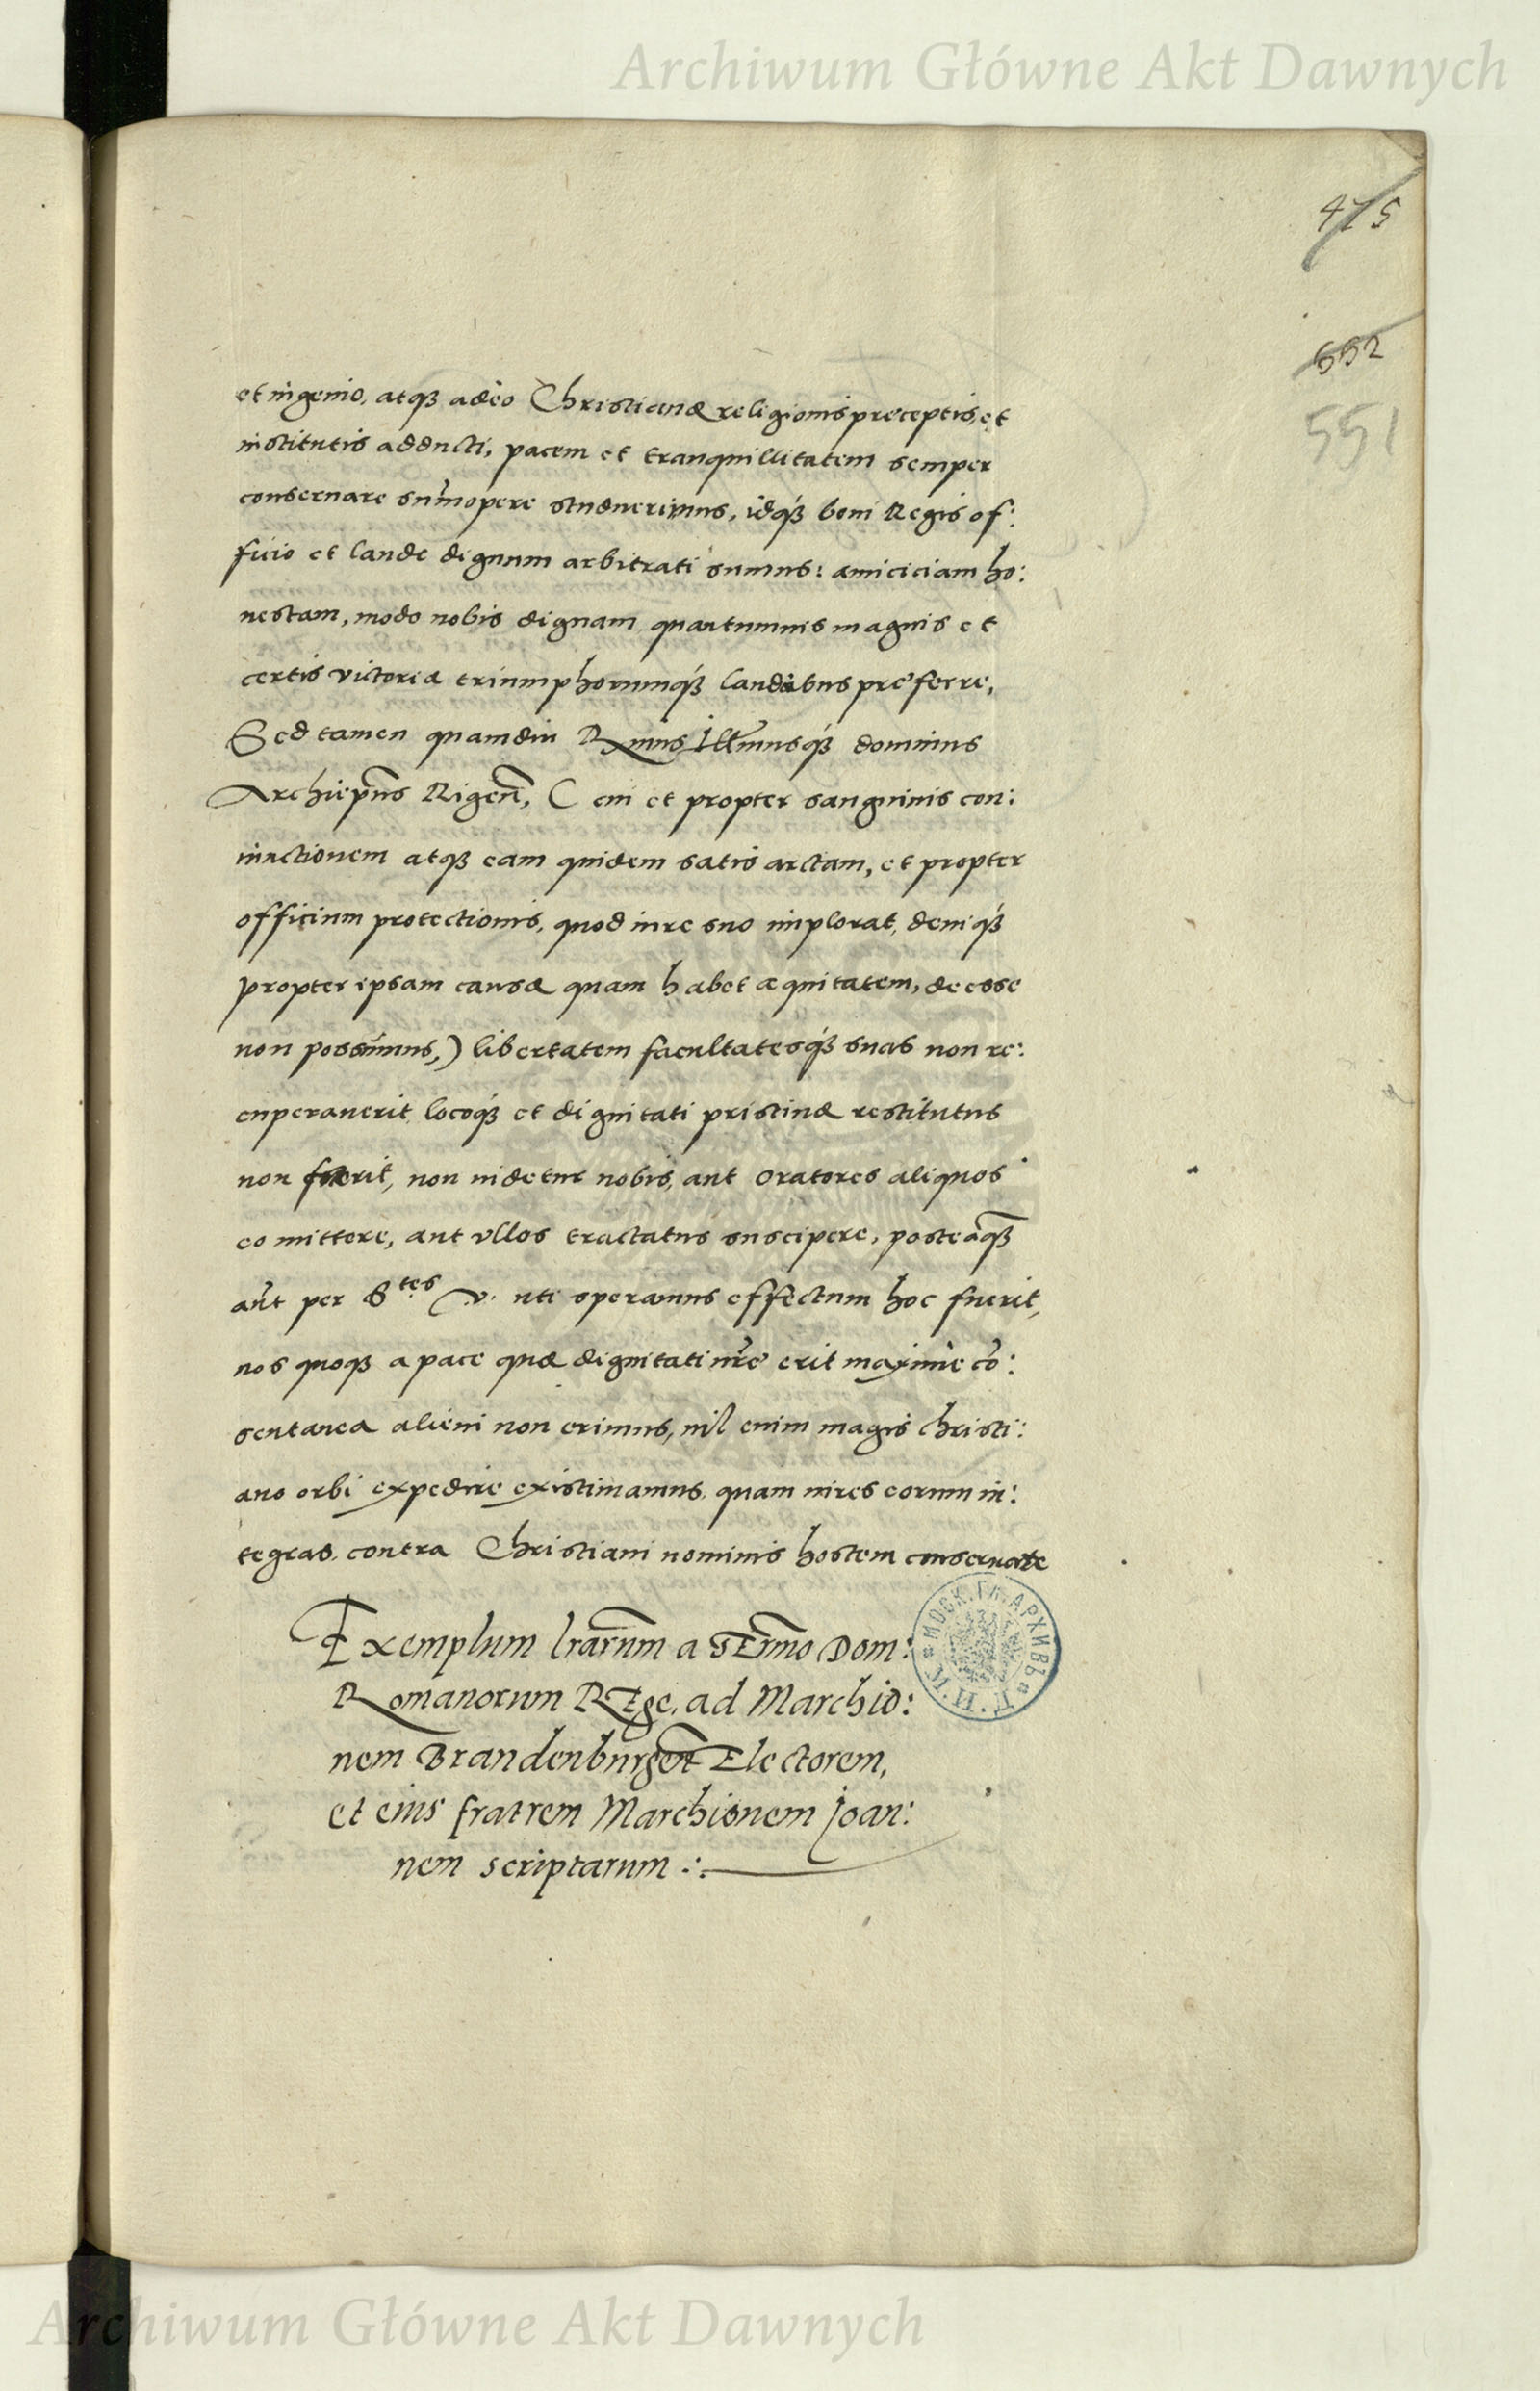 Archiwum Główne Akt Dawnych
475
552
551
et ingenio, atqȝ adeo Christianæ religionis preceptis, et
institutis adducti, pacem et tranquillitatem semper
conseruare sūmopere studuerimus, idqȝ boni Regis of:
ficio et laude dignum arbitrati sumus: amiciciam ho:
nestam, modo nobis dignam quantumuis magnis et
certis victoriæ triumphorumqȝ laudibus preferre,
Sed tamen quamdiu Rxmus Illmusqȝ dominus
Archiepūs Rigeñ, ( cui et propter sanguinis con:
iunctionem atqȝ eam quidem satis arctam, et propter
officium protectionis, quod iure suo implorat, deniqȝ
propter ipsam causæ quam habet æquitatem, deesse
non possumus,) libertatem facultatesqȝ suas non re:
cuperauerit, locoqȝ et dignitati pristinæ restitutus
non fuerit, non uidetur nobis, aut oratores aliquos
eo mittere, aut vllos tractatus suscipere, posteaqȝ
aūt per Stes v. uti speramus effectum hoc fuerit,
nos quoqȝ a pace quæ dignitati nr̃e erit maxime cō:
sentanea alieni non erimus, nil enim magis christi:
ano orbi expedire existimamus, quam uires eorum in:
tegras, contra Christiani nominis hostem conseruate
Exemplum lrarum a SErmo Dom:
Romanorum REge, ad Marchio:
nem Brandenburgeñ Electorem,
et eius fratrem Marchionem Joan:
nem scriptarum :.
МОСК. ГЛ. АРХИВЪ
Archiwum Główne Akt Dawnych